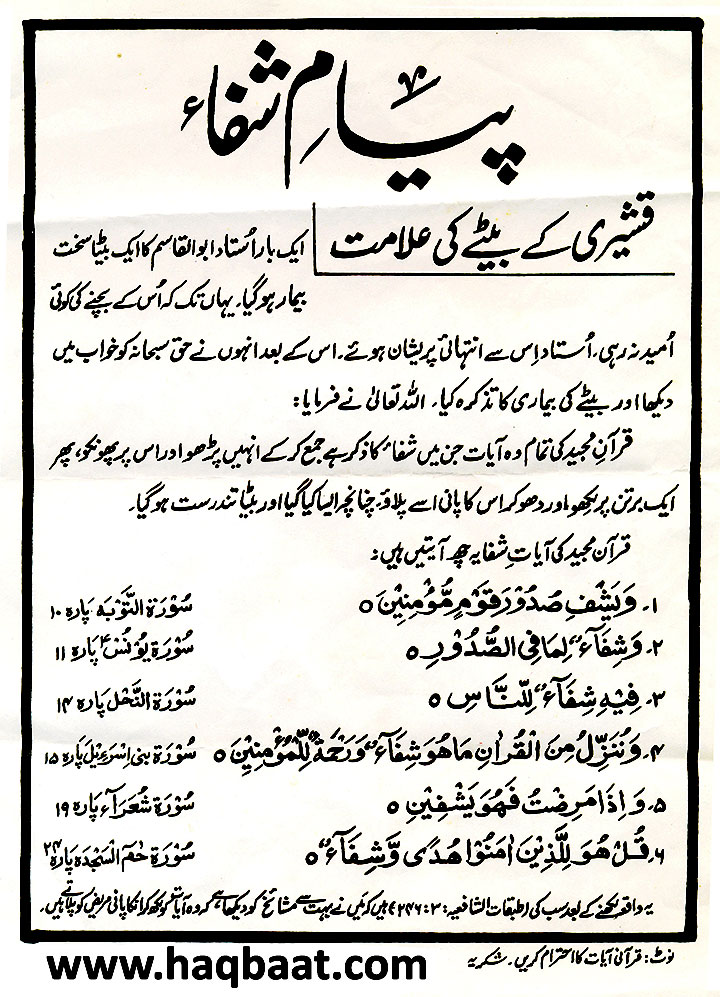 پیامِ شفاء
قشیری کے بیٹے کی علامت
ایک بار اُستاد ابوالقاسم کا ایک بیٹا سخت
بیمار ہوگیا۔ یہاں تک کہ اُس کے بچنے کی کوئی
اُمید نہ رہی۔ اُستاد اِس سے انتہائی پریشان ہوئے۔ اس کے بعد انہوں نے حق سبحانہ کو خواب میں
دیکھا اور بیٹے کی بیماری کا تذکرہ کیا۔ اللہ تعالیٰ نے فرمایا:
قرآن مجید کی تمام وہ آیات جن میں شفاء کا ذکر ہے جمع کرکے انہیں پڑھو اور اس پر پھونکو، پھر
ایک برتن پر لکھو اور دھو کر اس کا پانی اسے پلاؤ، چنانچہ ایسا کیا گیا اور بیٹا تندرست ہوگیا۔
قرآن مجید کی آیاتِ شفایہ چھ آیتیں ہیں:
۱۔ وَيَشْفِ صُدُوْرَ قَوْمٍ مُّؤْمِنِيْنَ ۝ سُوْرَۃ التَّوْبَہ پارہ ۱۰
۲۔ وَشِفَآءٌ لِّمَا فِی الصُّدُوْرِ ۝ سُوْرَۃ یُوْنُسْ پارہ ۱۱
۳۔ فِيْهِ شِفَآءٌ لِّلنَّاسِ ۝ سُوْرَۃ النَّحْل پارہ ۱۴
۴۔ وَنُنَزِّلُ مِنَ الْقُرْاٰنِ مَا هُوَ شِفَآءٌ وَّرَحْمَةٌ لِّلْمُؤْمِنِيْنَ ۝ سُوْرَۃ بنی اِسْرَءِیْل پارہ ۱۵
۵۔ وَاِذَا مَرِضْتُ فَهُوَ يَشْفِيْنِ ۝ سُوْرَۃ شُعَرَآء پارہ ۱۹
۶۔ قُلْ هُوَ لِلَّذِيْنَ اٰمَنُوْا هُدًى وَّشِفَآءٌ ۝ سُوْرَۃ حٰمٓ السَّجْدَہ پارہ ۲۴
یہ واقعہ لکھنے کے بعد سبکی (طبقات الشافعیہ: ۳: ۲۴۶) ہیں کہ میں نے بہت سے مشائخ کو دیکھا ہے کہ وہ آیات کو لکھ کر انکا پانی مریض کو پلاتے ہیں۔
نوٹ: قرآنی آیات کا احترام کریں۔ شکریہ
www.haqbaat.com